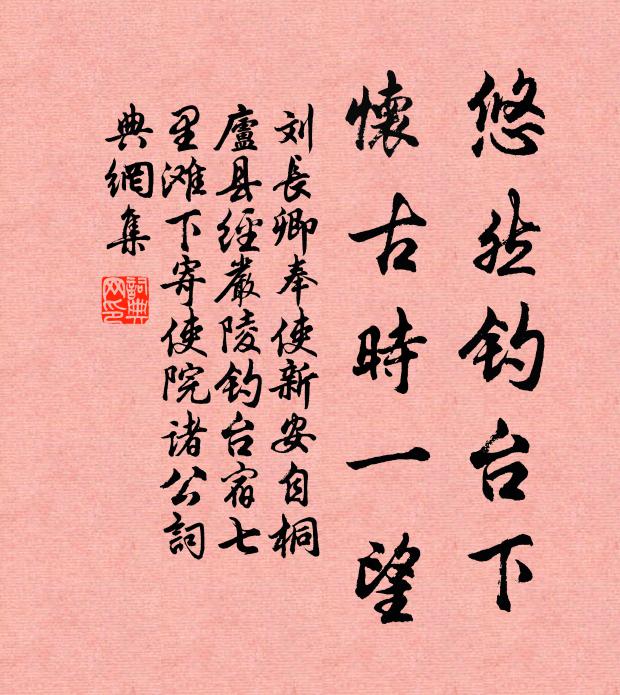 悠然钓台下
懷古時一望
刘長卿奉使新安自桐
廬县經嚴陵钓台宿七
里滩下寄使院诸公詞
典網集
詞典
网印